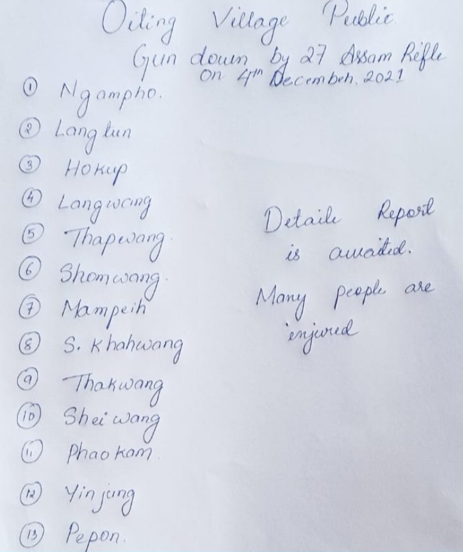 Oiting Village Public
Gun down by 27 Assam Rifle
on 4th December, 2021
① Ngampho.
② Langtun
③ Hokup
④ Langwang
⑤ Thapwang.
⑥ Shomwang.
⑦ Mampeih
⑧ S. Khahwang
⑨ Thakwang
⑩ Sheiwang
⑪ Phaokam.
⑫ Yinjung
⑬ Pepon.
Detaile Report
is awaited.
Many people are
injured